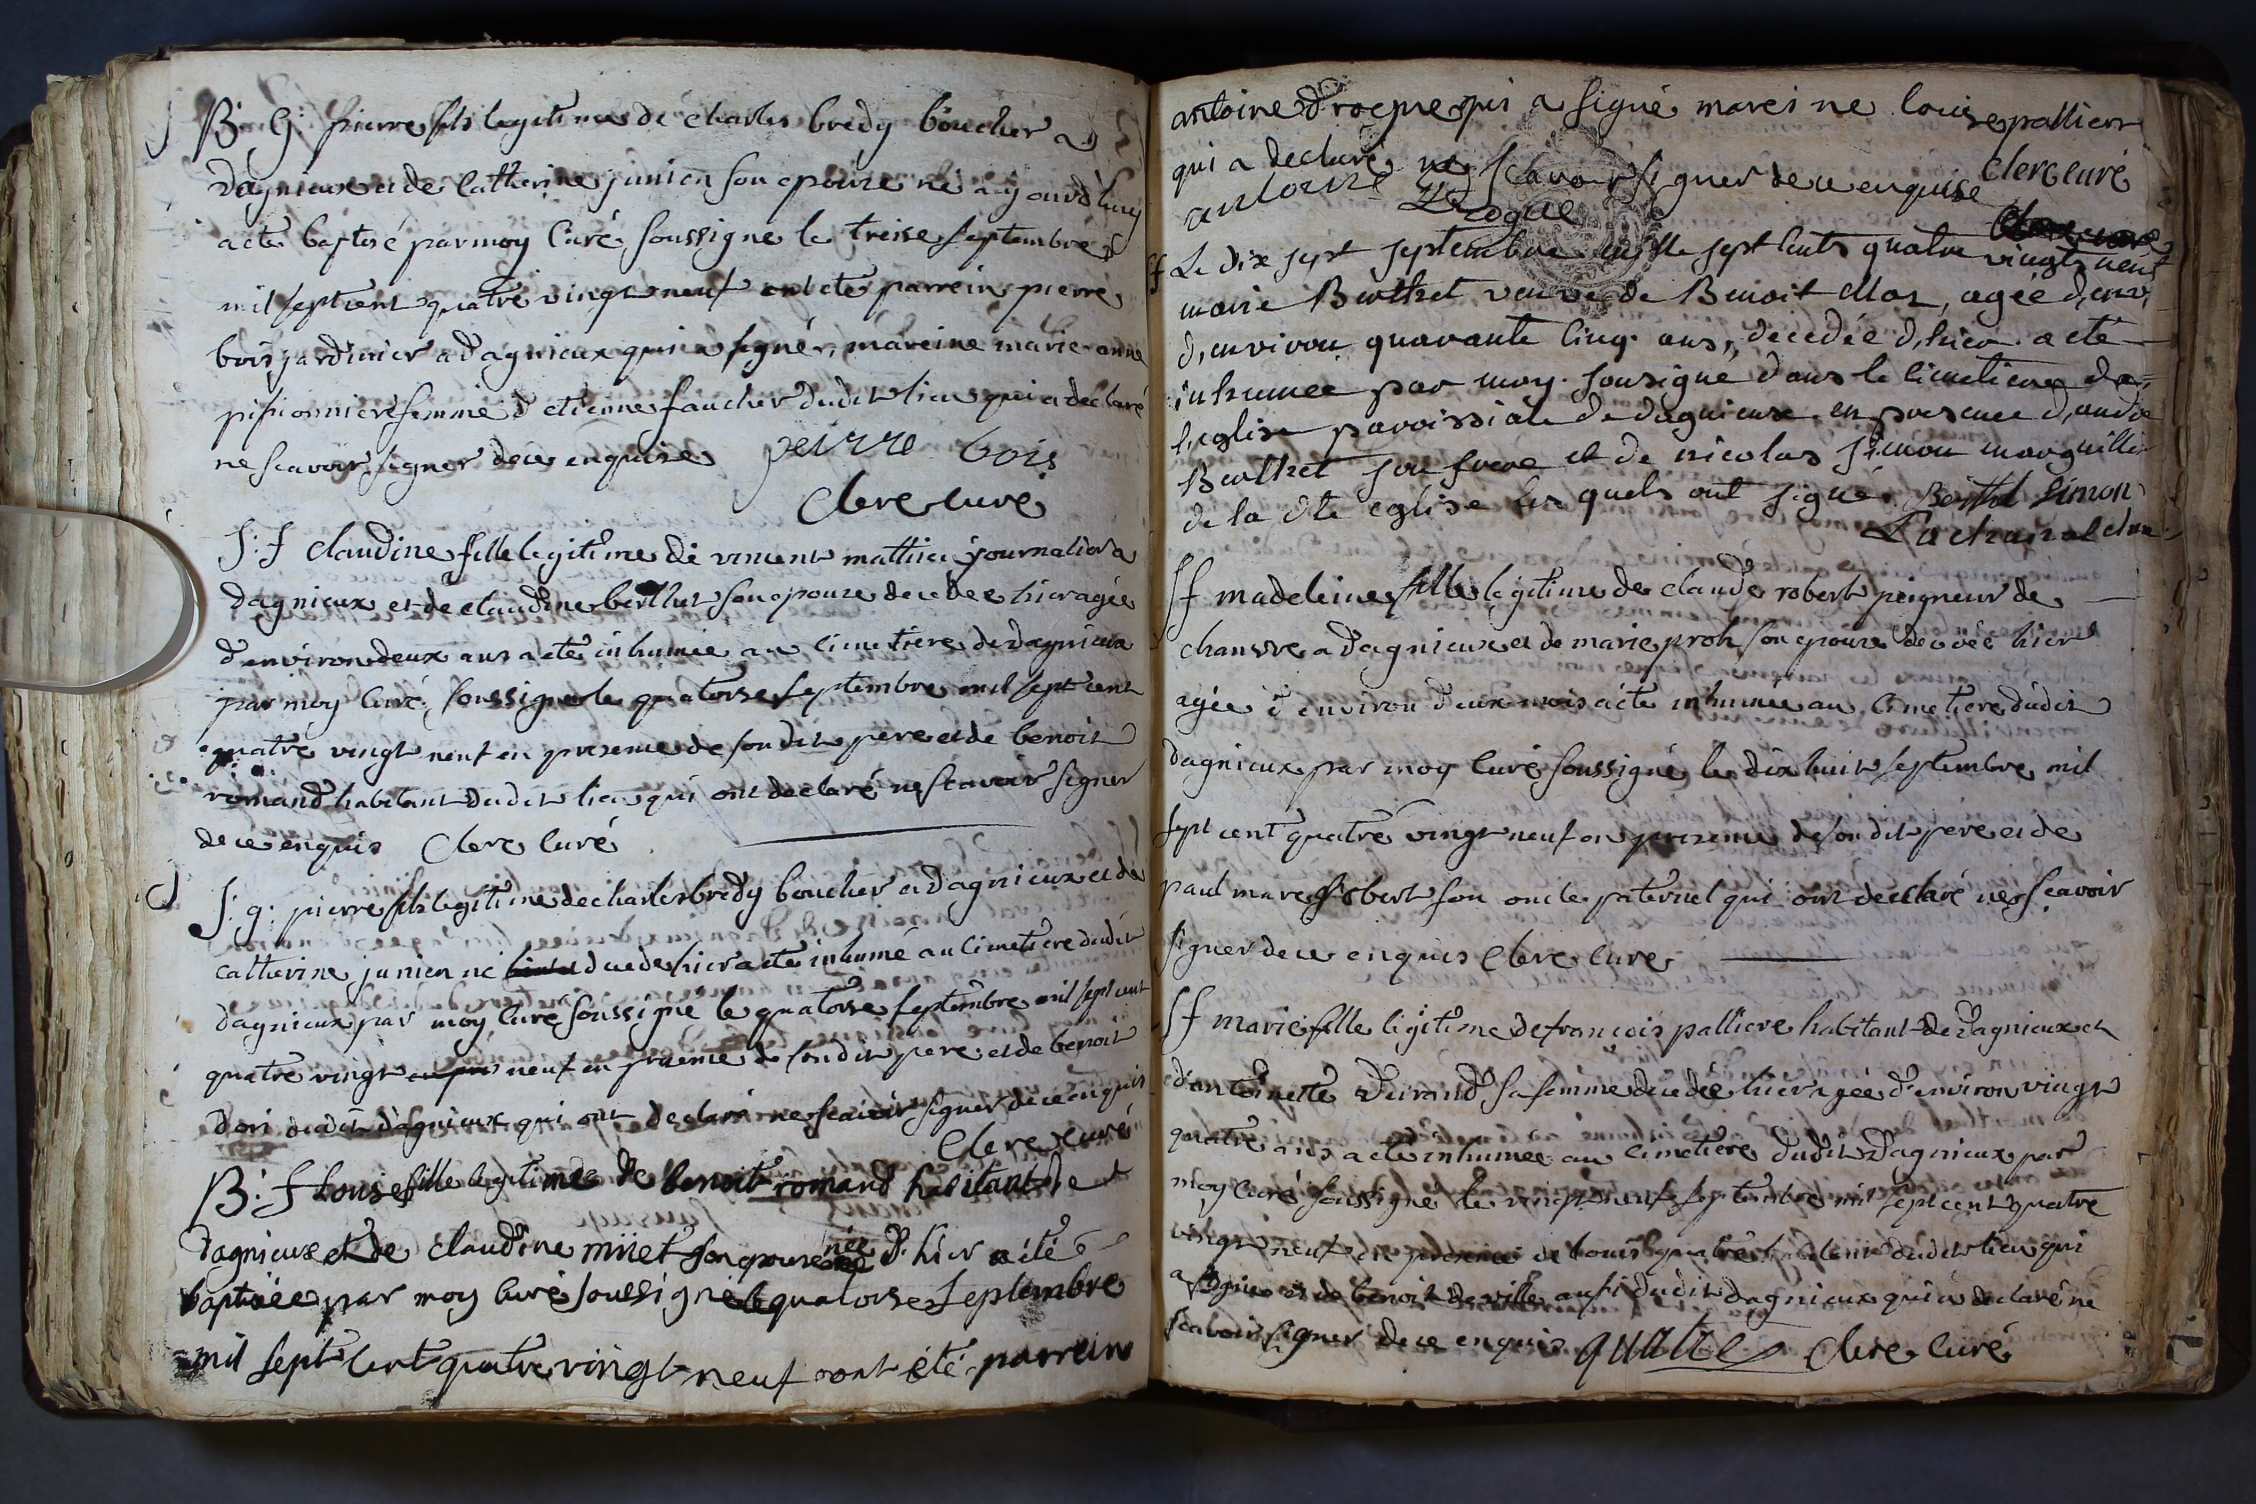 B: G: pierre fils legitime de charles bredy boucher a
dagnieux et de Catherine junien son epouze né aujourd'huy
a ete baptisé par moy Curé soussigne le treise septembre
mil sept cent quatre vingt neuf ont ete parrein pierre
bois jardinier a dagnieux qui a signé, mareine marie anne
femme d'etienne faucher dudit lieu qui a declaré
ne scavoir signer de ce enquise peirre bois
Clerc curé
S: f claudine fille legitime de vincent mathieu journalier a
dagnieux et de claudine berthet son epouze decedee hier agée
d'environ deux ans a ete inhumée au Cimetiere de dagnieux
par moy Curé soussigne le quatorse septembre mil sept cent
quatre vingt neuf en presence de son dit pere et de benoit
romand habitant dudit lieu qui ont declaré ne scavoir signer
de ce enquis Clerc Curé
S: g: pierre fils legitime de charles bredy boucher a dagnieux et de
catherine junien né decede hier a ete inhumé au Cimetiere dudit
dagnieux par moy curé soussigne le quatorse septembre mil sept cent
quatre vingt neuf en presence de son dit pere et de benoit
dudit dagnieux qui ont declaré ne scavoir signer de ce enquis
Clerc curé
B: f Louise fille legitime de benoit romand habitant de
dagnieux et de claudine miiet son epouze née d'hier a été
baptisée par moy Curé soussigné le quatorse septembre
mil sept Cent quatre vingt neuf ont été parrein
antoine Drogue qui a signé mareine louise palliere
qui a declaré ne scavoir signer de ce enquise Clerc curé
antoine Drogue
Sf Le dix sept septembre mille sept cents quatre vingts neuf
marie Berthet veuve de Benoit, agée d,envi
d,environ quarante Cinq ans, decedée d,hier a eté
inhumée par moy sousigne dans le Cimetiere de
l,eglise paroissiale de dagnieux en presence d,andre
Berthet son frere et de nicolas simon marguillier
de la dte eglise les quels ont signé. Berthet Simon
Sf madeleine fille legitime de claude robert peigneur de
chanvre a dagnieux et de marie son epouze decedée hier
agée d'environ deux mois a ete inhumée au Cimetiere dudit
dagnieux par moy curé soussigné le dix huit septembre mil
sept cent quatre vingt neuf en presence de son dit pere et de
paul marc robert son oncle paternel qui ont declaré ne scavoir
signer de ce enquis Clerc Curé
Sf marie fille legitime de francois palliere habitant de dagnieux et
d'antoinette Durand sa femme decedée hier agée d'environ vingt
quatre ans a ete inhumée au Cimetiere dudit dagnieux par
moy curé soussigné le vingt neuf septembre mil sept cent quatre
vingt neuf en presence de louis quatre habitant dudit lieu qui
a signe et de benoit deville aussi dudit dagnieux qui a declaré ne
scavoir signer de ce enquis quatre Clerc Curé